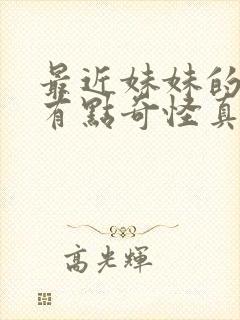 最近妹妹的
有點奇怪真
高光輝